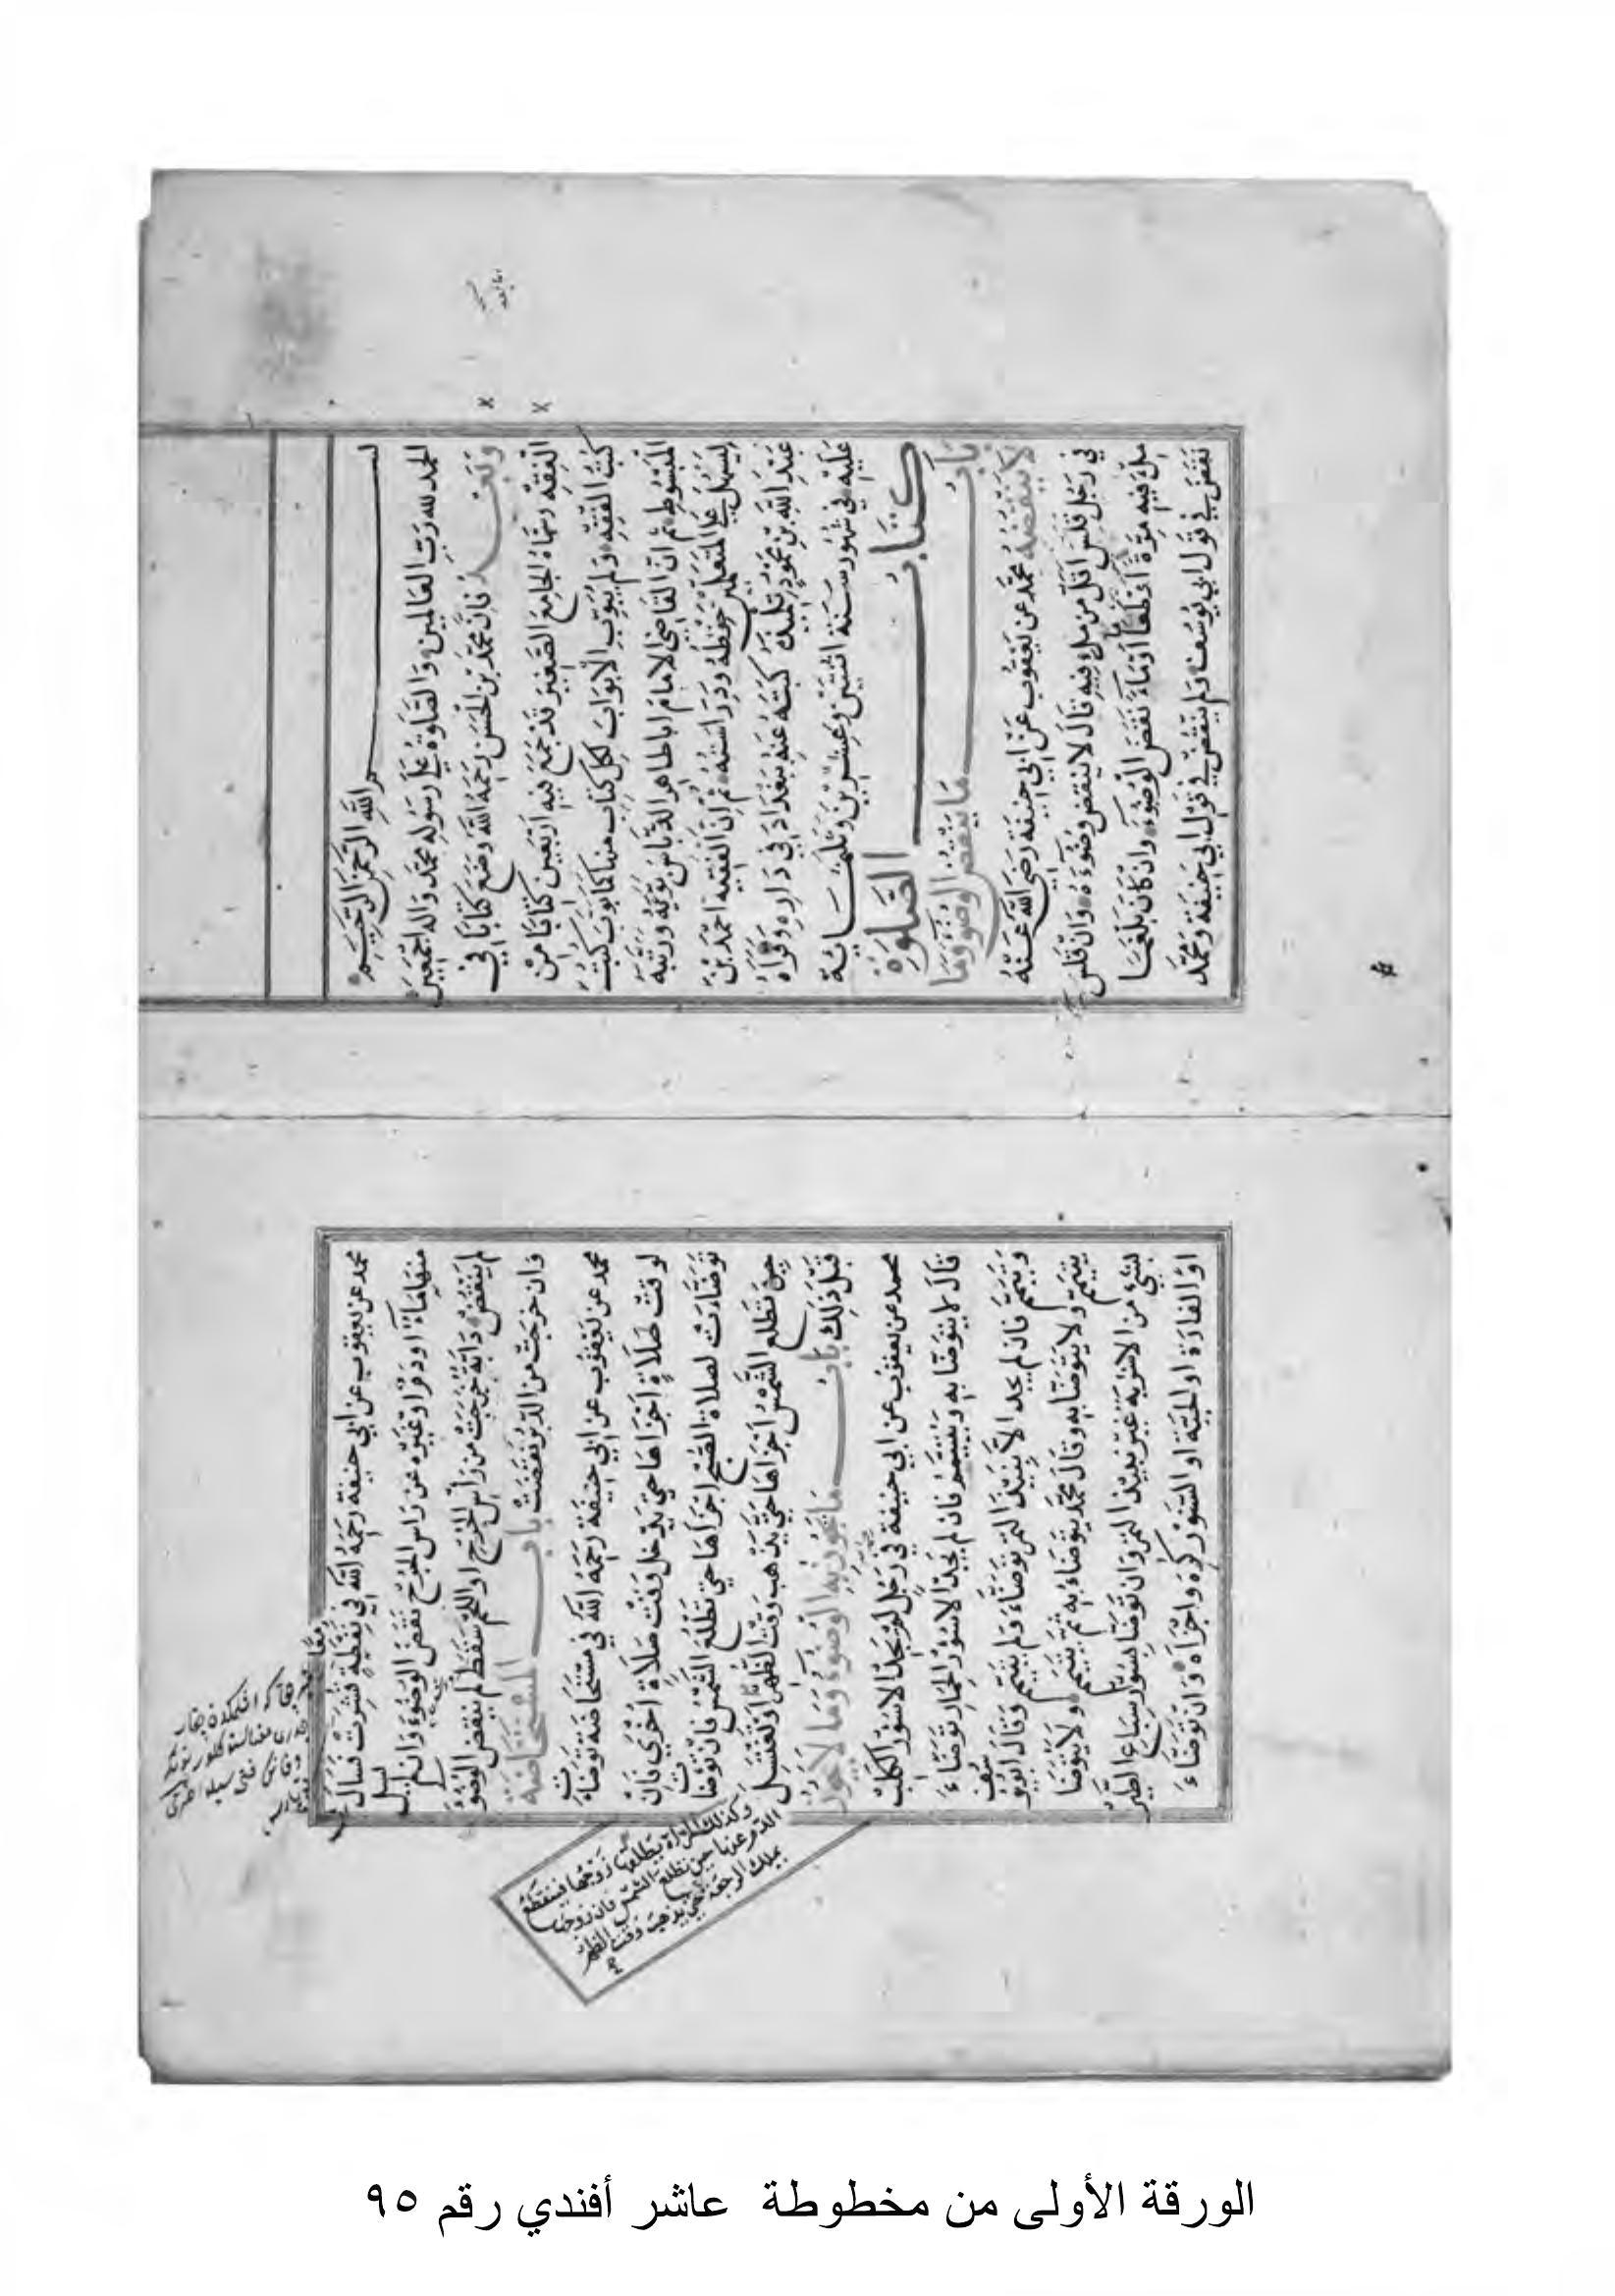 بسم الله الرحمن الرحيم
الحمد لله رب العالمين والصلوة على رسوله محمد واله اجمعين
وبعد فان محمد بن الحسن رحمه الله وضع كتابا في
الفقه وسماه الجامع الصغير قد جمع فيه اربعين كتابا من
كتب الفقه ولم يبوب الابواب لكل كتاب منها كما بوب كتب
المبسوط ثم ان القاضي الامام اباطاهر الدباس بوبه ورتبه
ليسهل على المتعلمين حفظه ودراسته ثم ان الفقيه احمد بن
عبد الله بن محمود تلميذه كتبه عنه ببغداد في داره وقرأه
عليه في شهور سنة اثنتين وعشرين وثلثمائة
كتاب الصلوة
باب ما ينقض الوضوء وما
لا ينقضه محمد عن يعقوب عن ابي حنيفة رضي الله عنه
في رجل قلس اقل من ملء فيه قال لا ينقض وضوءه وان قلس
ملء فيه مرة او طعاما او ماء نقض الوضوء وان كان بلغما
نقض في قول ابي يوسف ولم ينقض في قول ابي حنيفة ومحمد
محمد عن يعقوب عن ابي حنيفة رحمه الله في نفطة قشرت فسال
منها ماء او دم او غيره عن راس الجرح نقض الوضوء وان لم يسل
لم ينقض دابة خرجت من راس الجرح او اللحم سقط لم ينقض الوضوء
وان خرجت من الدبر نقضت باب المستحاضة
محمد عن يعقوب عن ابي حنيفة رحمه الله في مستحاضة توضأت
لوقت صلاة اجزاها حتى يدخل وقت صلاة اخرى فان
توضأت لصلاة الصبح اجزاها حتى تطلع الشمس فان توضأت
حين تطلع الشمس اجزاها حتى يذهب وقت الظهر
قبل ذلك باب ما يجوز به الوضوء وما لا يجوز
محمد عن يعقوب عن ابي حنيفة في رجل لم يجد الا سؤر الكلب
قال لا يتوضأ به ويتيمم فان لم يجد الا سؤر الحمار توضأ
وتيمم فان لم يجد الا نبيذ التمر توضأ ولم يتيمم وقال ابو يوسف
يتيمم ولا يتوضأ به وقال محمد يتوضأ به ثم يتيمم ولا يتوضأ
بشيء من الاشربة غير نبيذ التمر وان توضأ بسؤر سباع الطير
او الفارة او الحية او السنور كره واجزاه وان توضأ
وكذلك المرأة يطلقها زوجها فينقطع
الدم عنها حين تطلع الشمس فان زوجها
يملك الرجعة حتى يذهب وقت الظهر
الورقة الأولى من مخطوطة عاشر أفندي رقم ٩٥